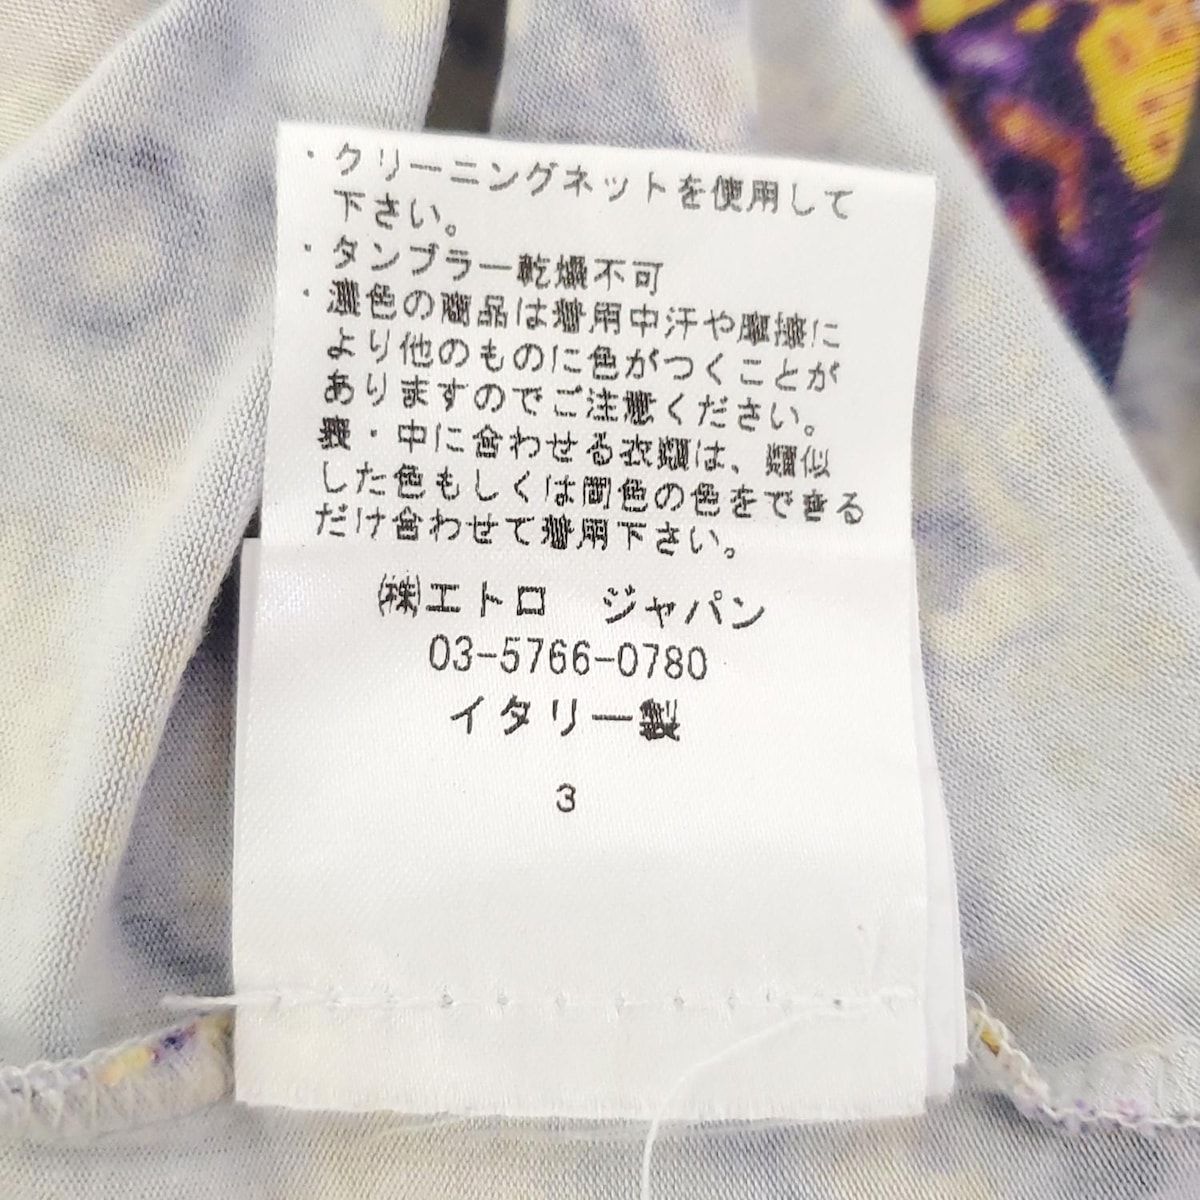 ・クリーニングネットを使用して
下さい。
・タンブラー乾燥不可
・濃色の商品は着用中汗や摩擦に
より他のものに色がつくことが
ありますのでご注意ください。
裏・中に合わせる衣類は、類似
した色もしくは同色の色をできる
だけ合わせて着用下さい。
㈱エトロ　ジャパン
03-5766-0780
イタリー製
3